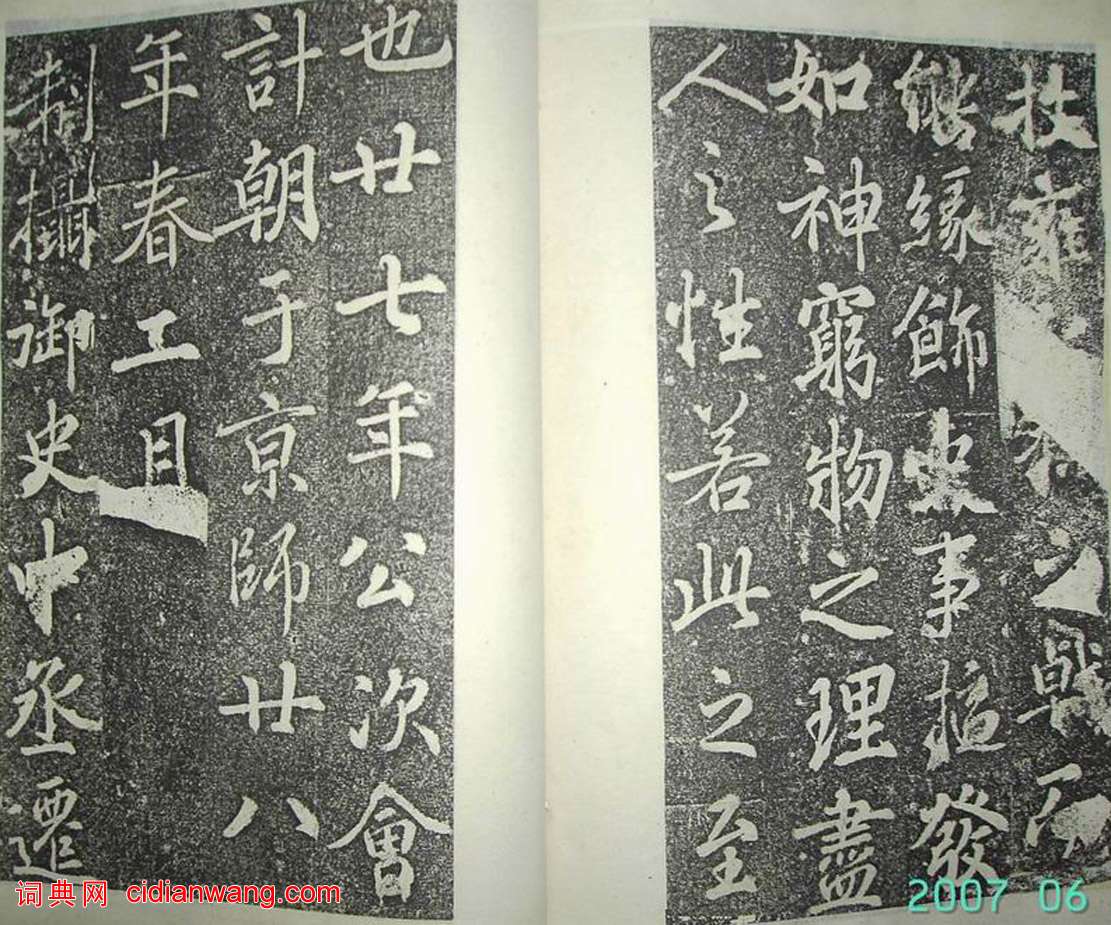 扶雍
之
能緣飾吏事摛發
如神窮物之理盡
人之性若此之至
也廿七年公次會
計朝于京師廿八
年春二月
制攝御史中丞遷
词典网 cidianwang.com
2007 06